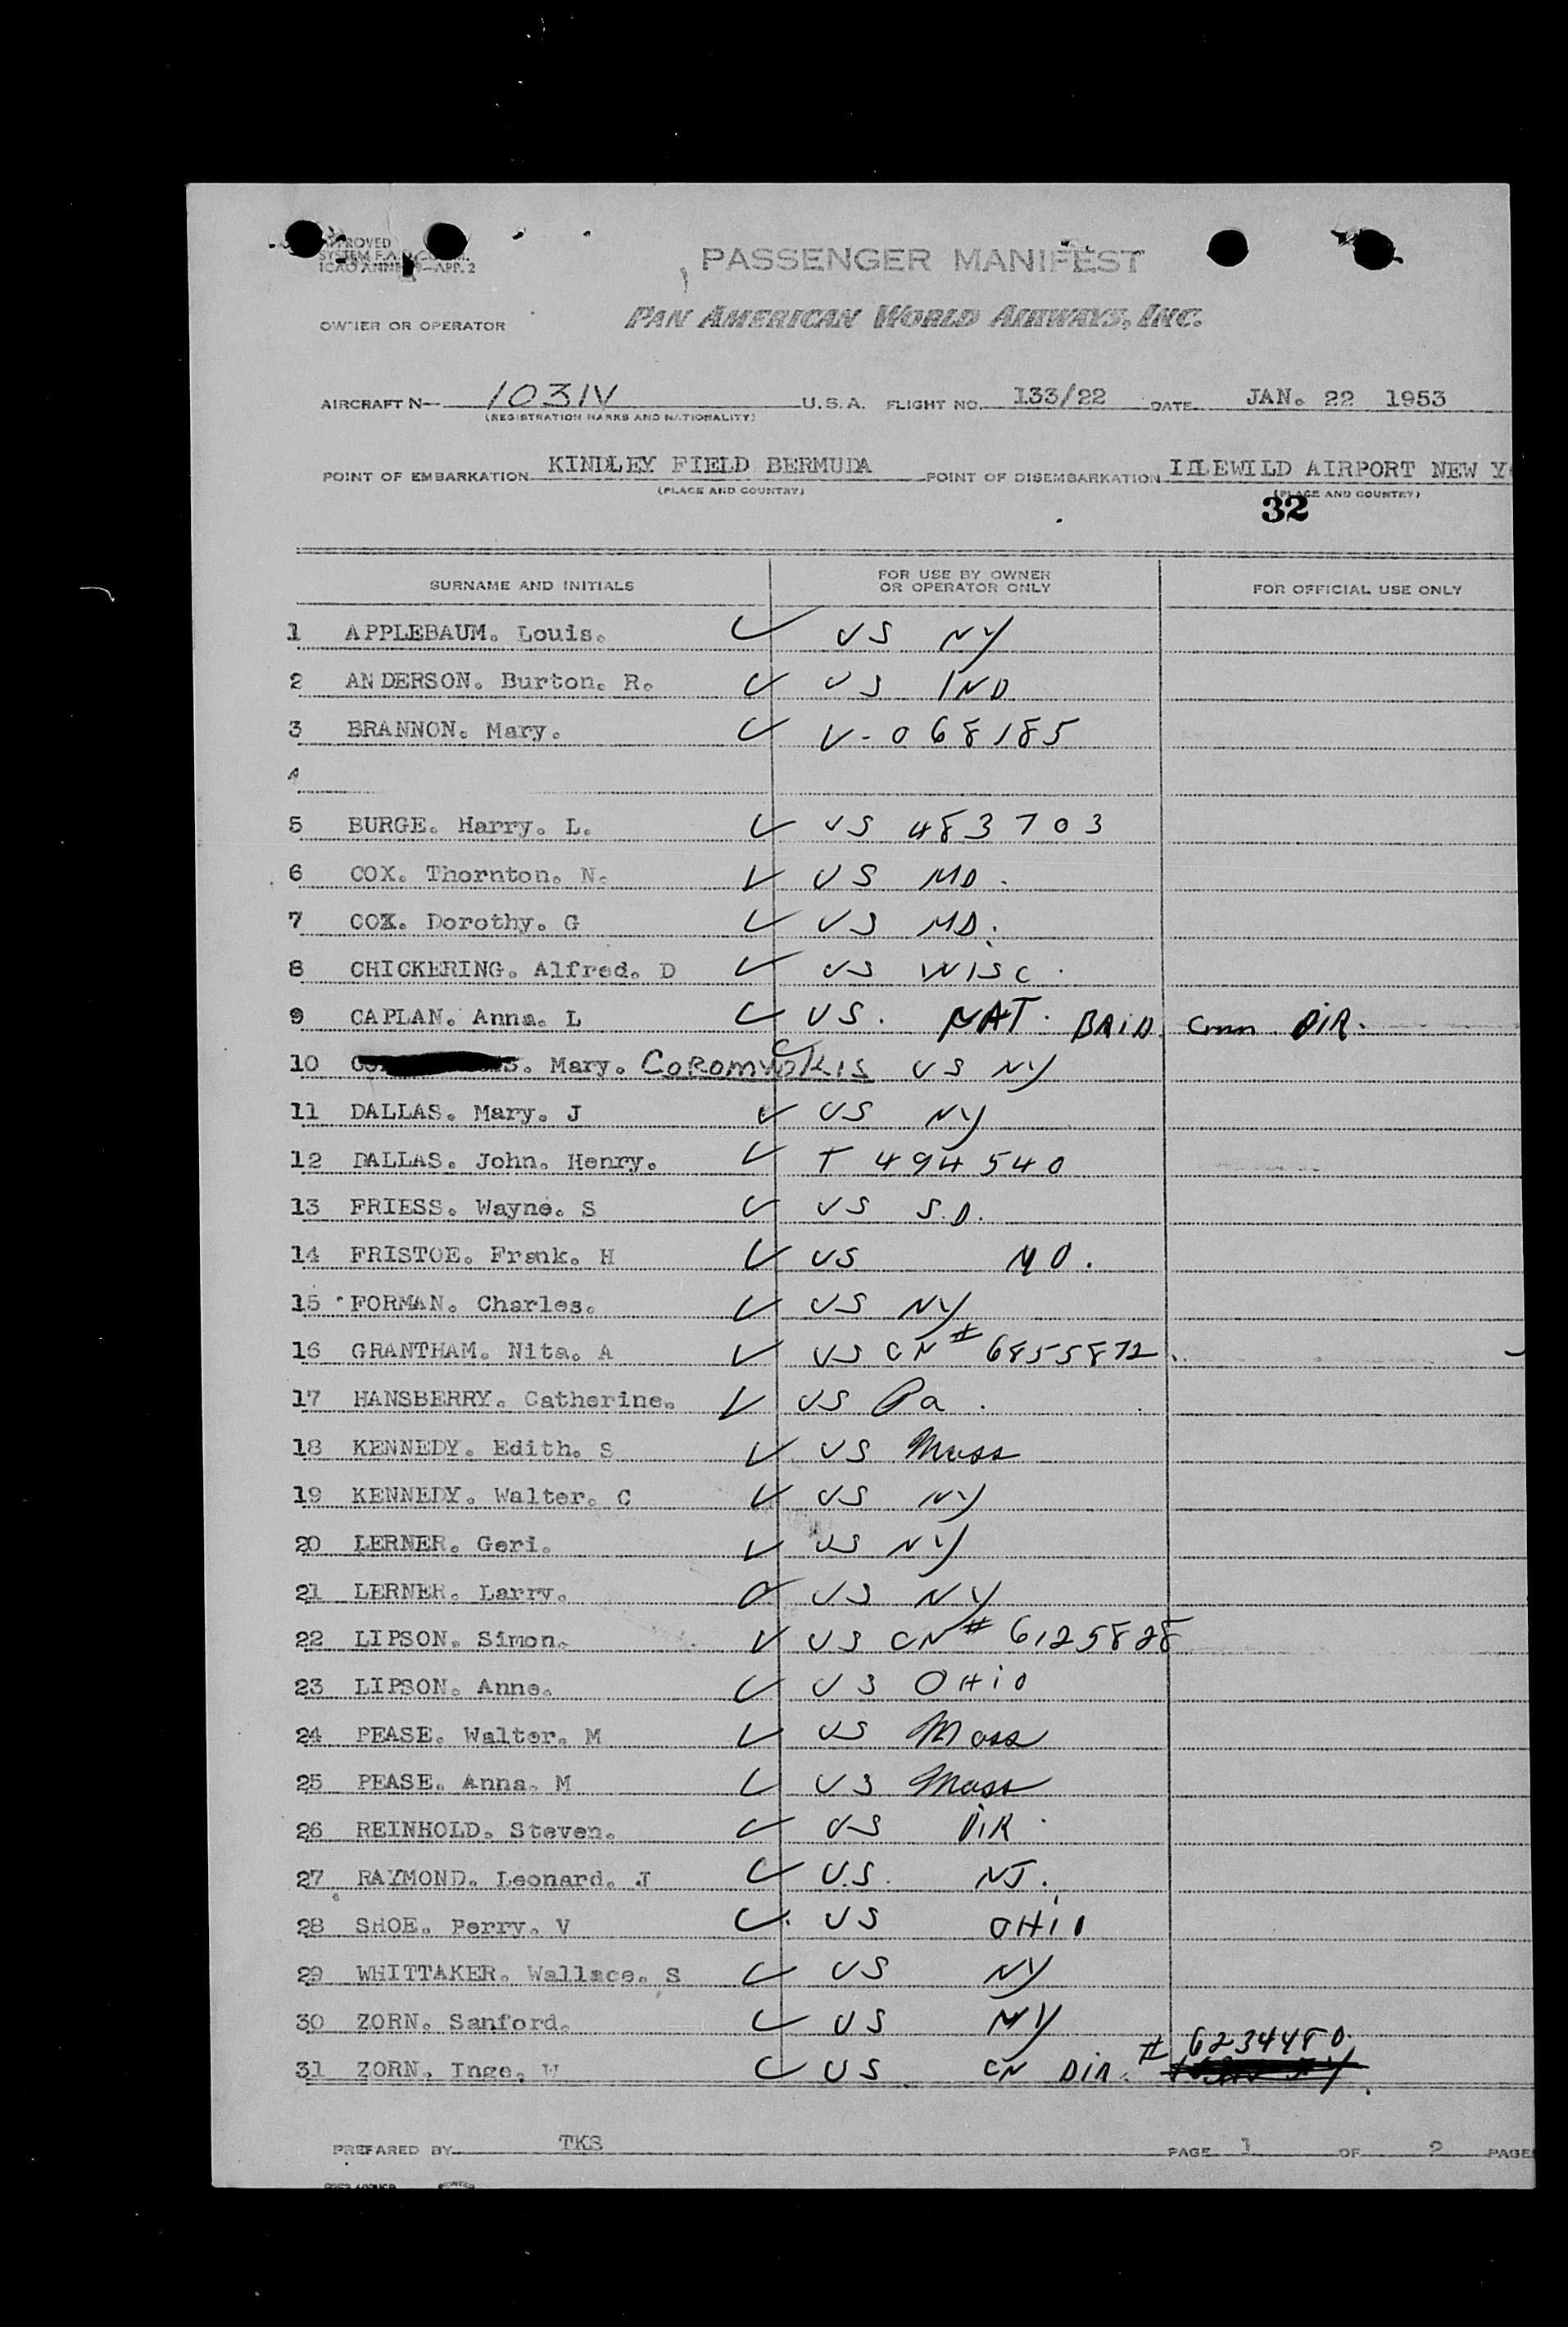 APPROVED
SYSTEM F.A.L.
ICAO ANNEX 9—APP. 2
PASSENGER MANIFEST
OWNER OR OPERATOR PAN AMERICAN WORLD AIRWAYS, INC.
AIRCRAFT N— 1031V U.S.A. FLIGHT NO. 133/22 DATE JAN. 22 1953
(REGISTRATION MARKS AND NATIONALITY)
POINT OF EMBARKATION KINDLEY FIELD BERMUDA POINT OF DISEMBARKATION IDLEWILD AIRPORT NEW YO
(PLACE AND COUNTRY) (PLACE AND COUNTRY)
32
SURNAME AND INITIALS FOR USE BY OWNER OR OPERATOR ONLY FOR OFFICIAL USE ONLY
1 APPLEBAUM. Louis. ✓ US NY
2 ANDERSON. Burton. R. ✓ US IND
3 BRANNON. Mary. ✓ V-068185
4
5 BURGE. Harry. L. ✓ US 483703
6 COX. Thornton. N. ✓ US MD.
7 COX. Dorothy. G ✓ US MD.
8 CHICKERING. Alfred. D ✓ US WISC.
9 CAPLAN. Anna. L ✓ US. NAT. BAID. Conn DIR.
10 Mary. COROMVOKIS ✓ US NY
11 DALLAS. Mary. J ✓ US NY
12 DALLAS. John. Henry. ✓ T 494540
13 FRIESS. Wayne. S ✓ US S.D.
14 FRISTOE. Frank. H ✓ US MO.
15 FORMAN. Charles. ✓ US NY
16 GRANTHAM. Nita. A ✓ US CN# 6855872.
17 HANSBERRY. Catherine. ✓ US Pa.
18 KENNEDY. Edith. S ✓ US Mass
19 KENNEDY. Walter. C ✓ US NY
20 LERNER. Geri. ✓ US NY
21 LERNER. Larry. ✓ US NY
22 LIPSON. Simon. ✓ US CN# 6125828
23 LIPSON. Anne. ✓ US OHIO
24 PEASE. Walter. M ✓ US Mass
25 PEASE. Anna. M ✓ US Mass
26 REINHOLD. Steven. ✓ US DIR.
27 RAYMOND. Leonard. J ✓ U.S. NJ.
28 SHOE. Perry. V ✓ US OHIO
29 WHITTAKER. Wallace. S ✓ US NY
30 ZORN. Sanford. ✓ US NY
31 ZORN. Inge. W ✓ US. CN DIR. # 6234480.
PREPARED BY TKS PAGE 1 OF 2 PAGE